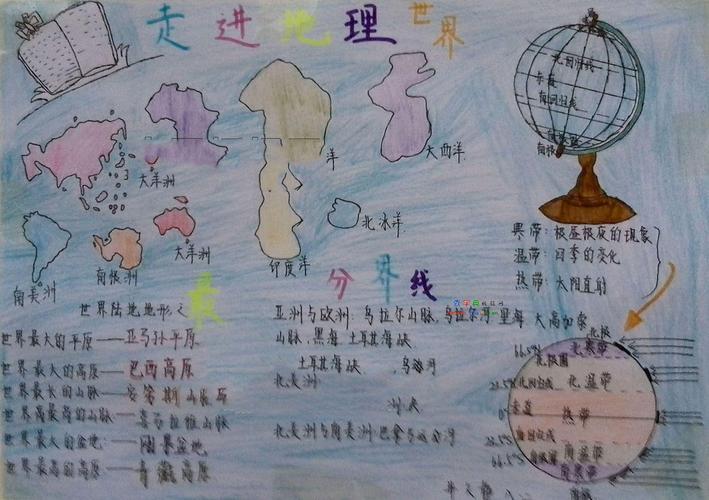 走进地理世界
北回归线
赤道
南回归线
南极
大洋洲
洋
大西洋
北冰洋
大洋洲
南极洲
南美洲
印度洋
寒带:极昼极夜的现象
温带:四季的变化
热带:太阳直射
世界陆地地形之最
世界最大的平原——亚马孙平原
世界最大的高原——巴西高原
世界最长的山脉——安第斯山脉
世界最高的山脉——喜马拉雅山脉
世界最大的盆地——刚果盆地
世界最高的高原——青藏高原
分界线
亚洲与欧洲:乌拉尔山脉,乌拉尔河 里海 大高加索
山脉,黑海 土耳其海峡
土耳其海峡
北美洲
北美洲与南美洲:巴拿马运河
北极
北寒带
66.5°N
北极圈
23.5°N北回归线
北温带
0°
赤道
热带
23.5°S
南回归线
南温带
66.5°S
南极圈
南寒带